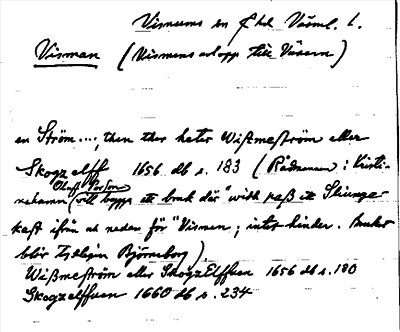 Vismens en f hd Väsml. l.
Visman (Vismens utlopp till Väsern)
en Ström ..., then ther heter Wissmeström eller
Skogzelff 1656 db s. 183 (Rådmannen i Kristi-
nehamn
Oluff Persson
will bygga ett bruk där "widh pass itt Sluinge-
kast ifrån ok nedan för "Vismen; inter hinder. Bruket
blir tydligen Björneborg).
Wissmeström eller SkogzElffuen 1656 db s. 180
Skogzelffuen 1660 db s. 234